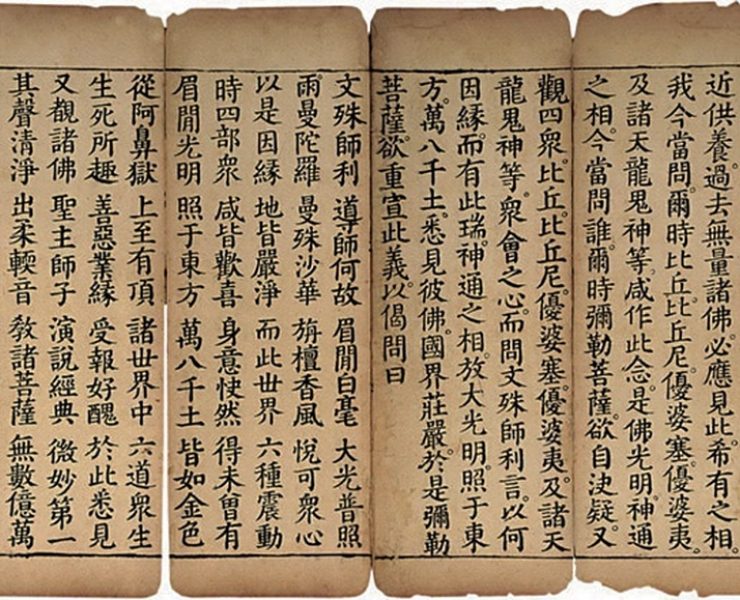 近供養。過去無量諸佛。必應見此。希有之相。
我今當問。爾時比丘比丘尼。優婆塞。優婆夷。
及諸天龍鬼神等。咸作此念。是佛光明。神通
之相。今當問誰。爾時彌勒菩薩。欲自決疑。又
觀四衆。比丘比丘尼。優婆塞優婆夷。及諸天
龍鬼神等。衆會之心。而問文殊師利言。以何
因緣。而有此瑞。神通之相。放大光明。照于東
方。萬八千土。悉見彼佛。國界莊嚴。於是彌勒
菩薩。欲重宣此義。以偈問曰
文殊師利 導師何故 眉閒白毫 大光普照
雨曼陀羅 曼殊沙華 栴檀香風 悅可衆心
以是因緣 地皆嚴淨 而此世界 六種震動
時四部衆 咸皆歡喜 身意快然 得未曾有
眉閒光明 照于東方 萬八千土 皆如金色
從阿鼻獄 上至有頂 諸世界中 六道衆生
生死所趣 善惡業緣 受報好醜 於此悉見
又覩諸佛 聖主師子 演說經典 微妙第一
其聲清淨 出柔輭音 敎諸菩薩 無數億萬